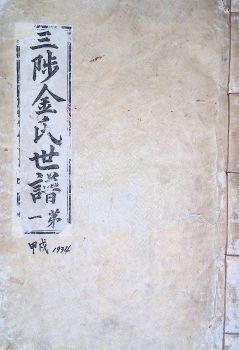 三陟金氏世譜
第一
甲戌 1934